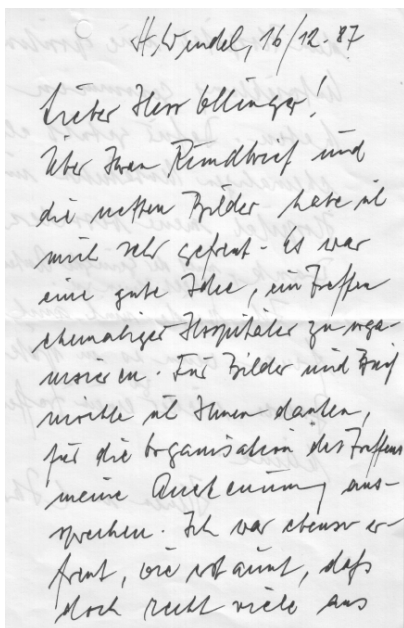 St. Wendel, 16/12.87
Lieber Herr Ollinger!
Über Ihren Rundbrief und
die netten Bilder habe ich
mich sehr gefreut. Es war
eine gute Idee, ein Treffen
ehemaliger Hospitäler zu orga-
nisieren. Für Bilder und Brief
möchte ich Ihnen danken,
für die Organisation des Treffens
meine Anerkennung aus-
sprechen. Ich war ebenso er-
freut, wie erstaunt, daß
doch recht viele aus